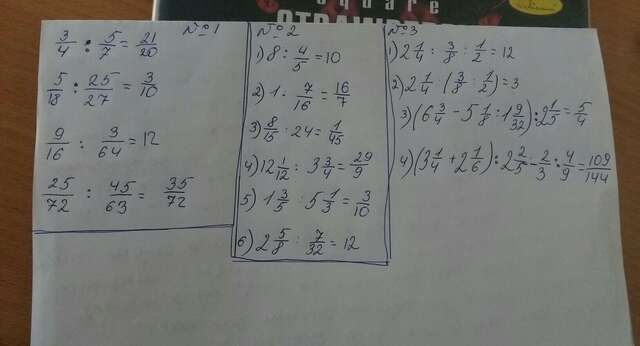 square
STRAWBERR
№ 1
3/4 : 5/7 = 21/20
5/18 : 25/27 = 3/10
9/16 : 3/64 = 12
25/72 : 45/63 = 35/72
№ 2
1) 8 : 4/5 = 10
2) 1 : 7/16 = 16/7
3) 8/15 : 24 = 1/45
4) 12 1/12 : 3 3/4 = 29/9
5) 1 3/5 : 5 1/3 = 3/10
6) 2 5/8 : 7/32 = 12
№ 3
1) 2 1/4 : 3/8 : 1/2 = 12
2) 2 1/4 · (3/8 : 1/2) = 3
3) (6 3/4 - 5 1/8 : 1 9/32) : 2 1/5 = 5/4
4) (3 1/4 + 2 1/6) : 2 2/5 - 2/3 : 4/9 = 109/144